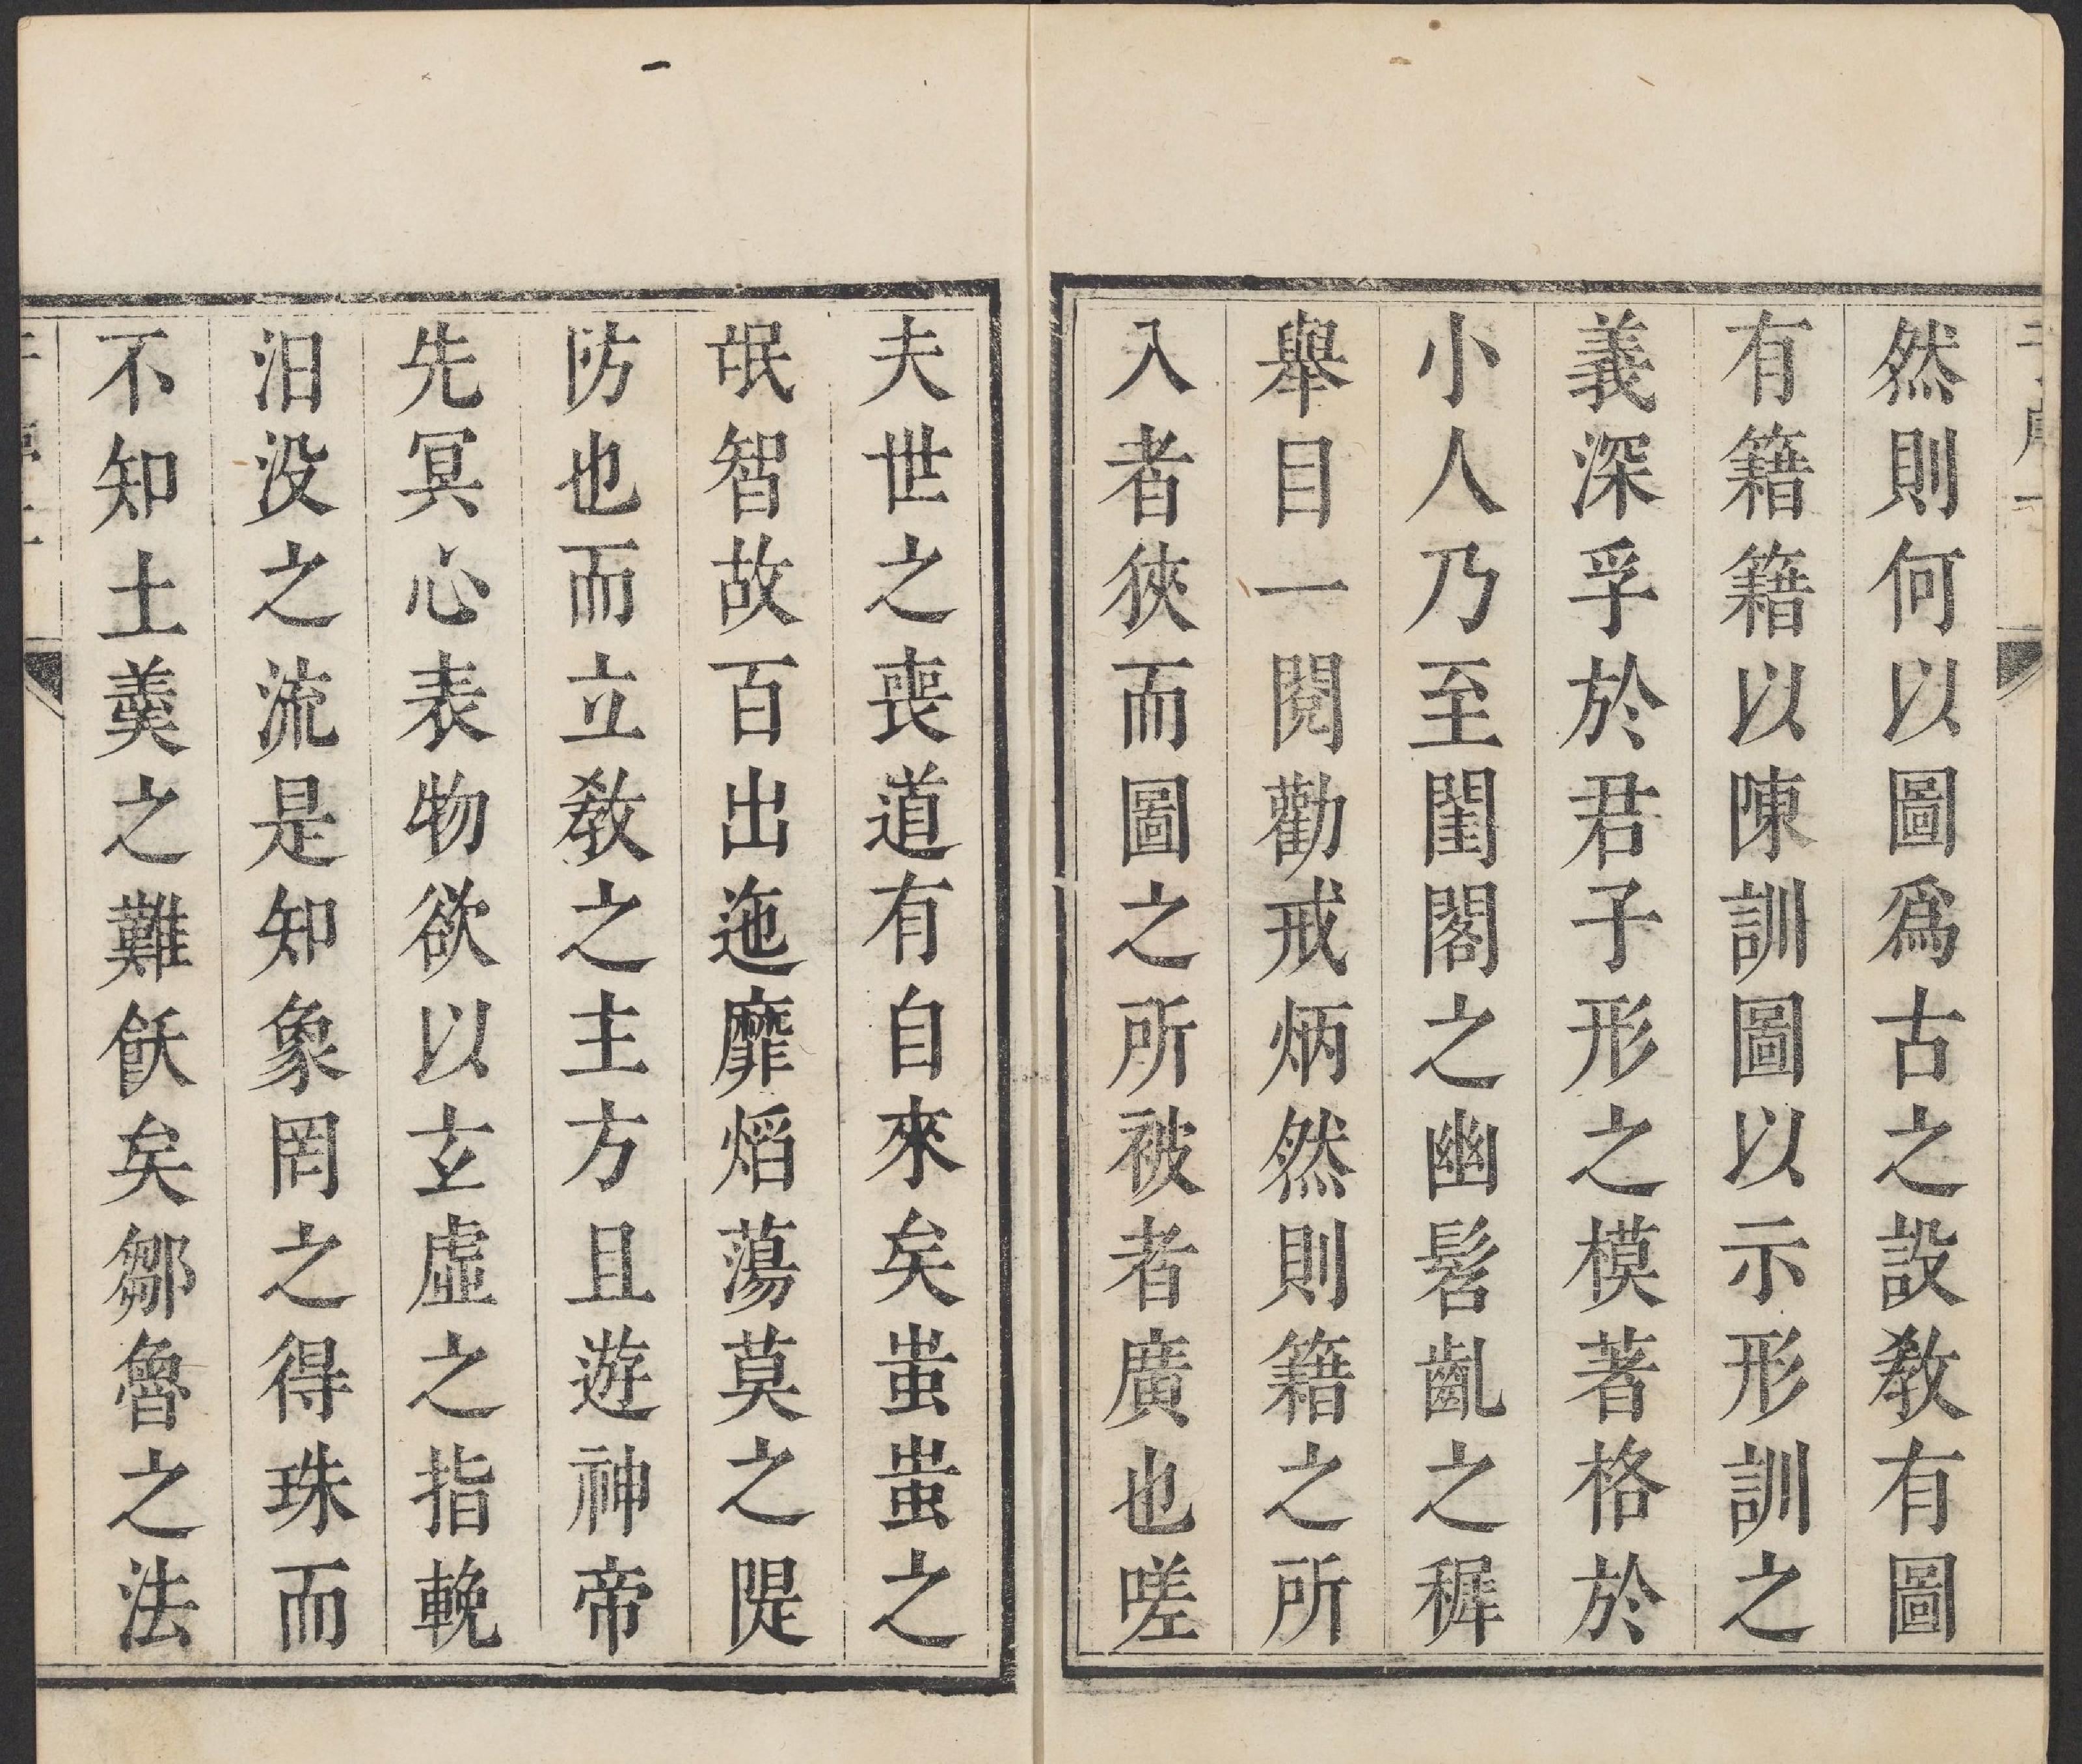 然則何以圖爲古之設教有圖
有籍籍以陳訓圖以示形訓之
義深孚於君子形之模著格於
小人乃至閨閣之幽髫齓之穉
舉目一閱勸戒炳然則籍之所
入者狹而圖之所被者廣也嗟
夫世之喪道有自來矣蚩蚩之
氓智故百出迤靡熖蕩莫之隄
防也而立教之主方且遊神帝
先冥心表物欲以玄虛之指輓
汨没之流是知象罔之得珠而
不知土羹之難飫矣鄒魯之法